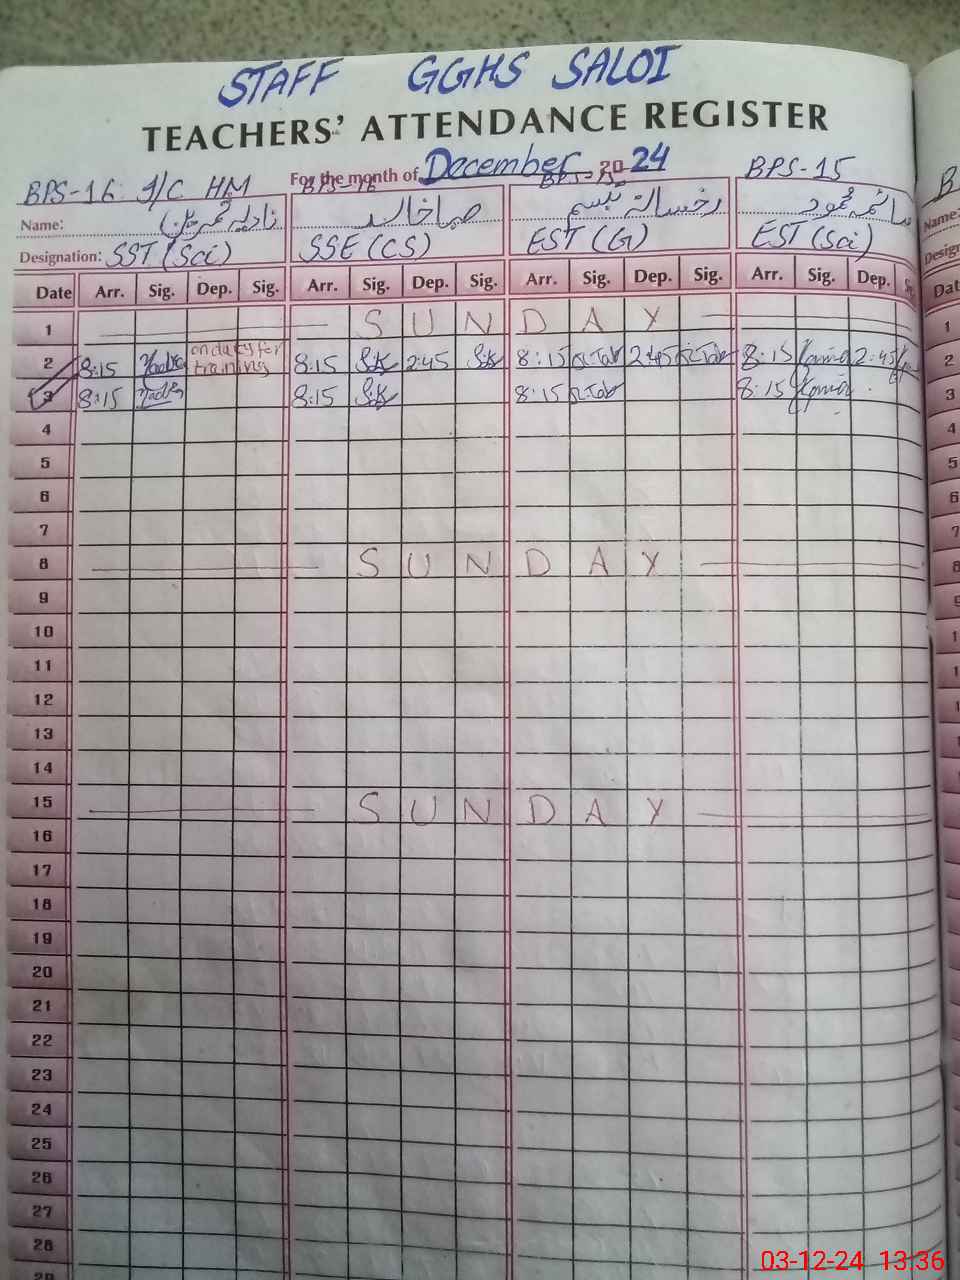 STAFF GGHS SALOI
TEACHERS' ATTENDANCE REGISTER
For the month of December 2024
BPS-16 I/C HM BPS-16 BPS-15 BPS-15
Name: صبا خالد رخسانہ تبسم صائمہ محمود
Designation: SST (Sci) SSE (CS) EST (G) EST (Sci)
Date Arr. Sig. Dep. Sig. Arr. Sig. Dep. Sig. Arr. Sig. Dep. Sig. Arr. Sig. Dep.
1 SUNDAY
2 8:15 on duty for training 8:15 2:45 8:15 2:45 8:15 2:45
3 8:15 8:15 8:15 8:15
4
5
6
7
8 SUNDAY
9
10
11
12
13
14
15 SUNDAY
16
17
18
19
20
21
22
23
24
25
26
27
28
29
03-12-24 13:36